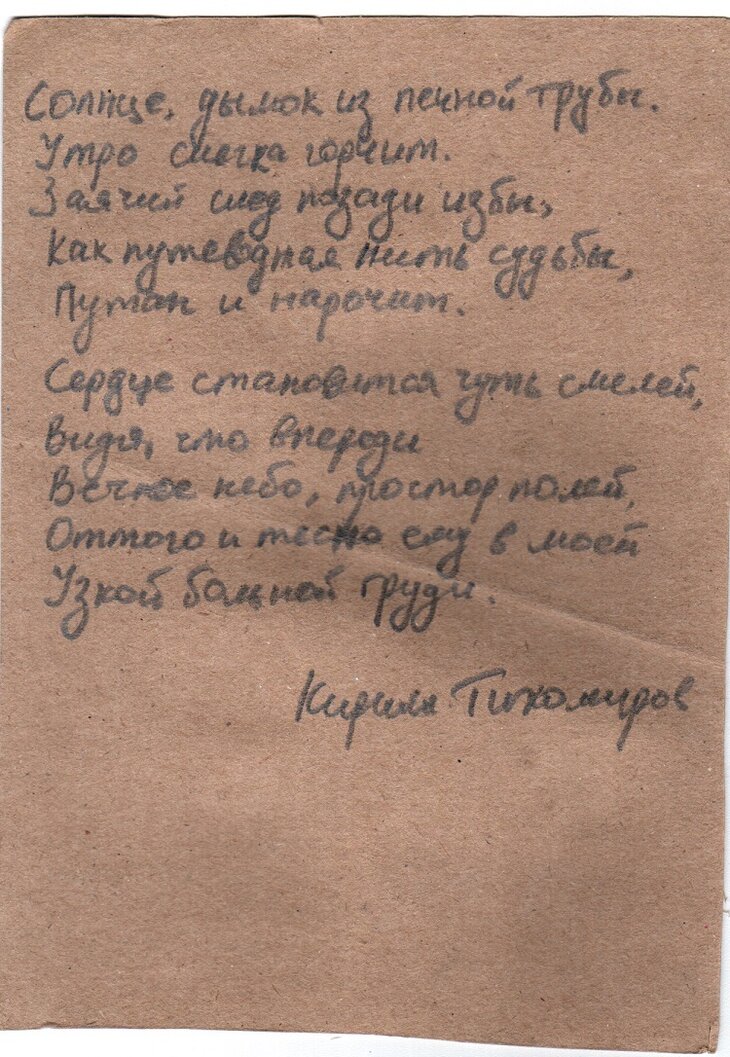 Солнце, дымок из печной трубы.
Утро слегка горчит.
Заячий след позади избы,
Как путеводная нить судьбы,
Путан и нарочит.
Сердце становится чуть смелей,
Видя, что впереди
Вечное небо, простор полей,
Оттого и тесно ему в моей
Узкой больной груди.
Кирилл Тихомиров